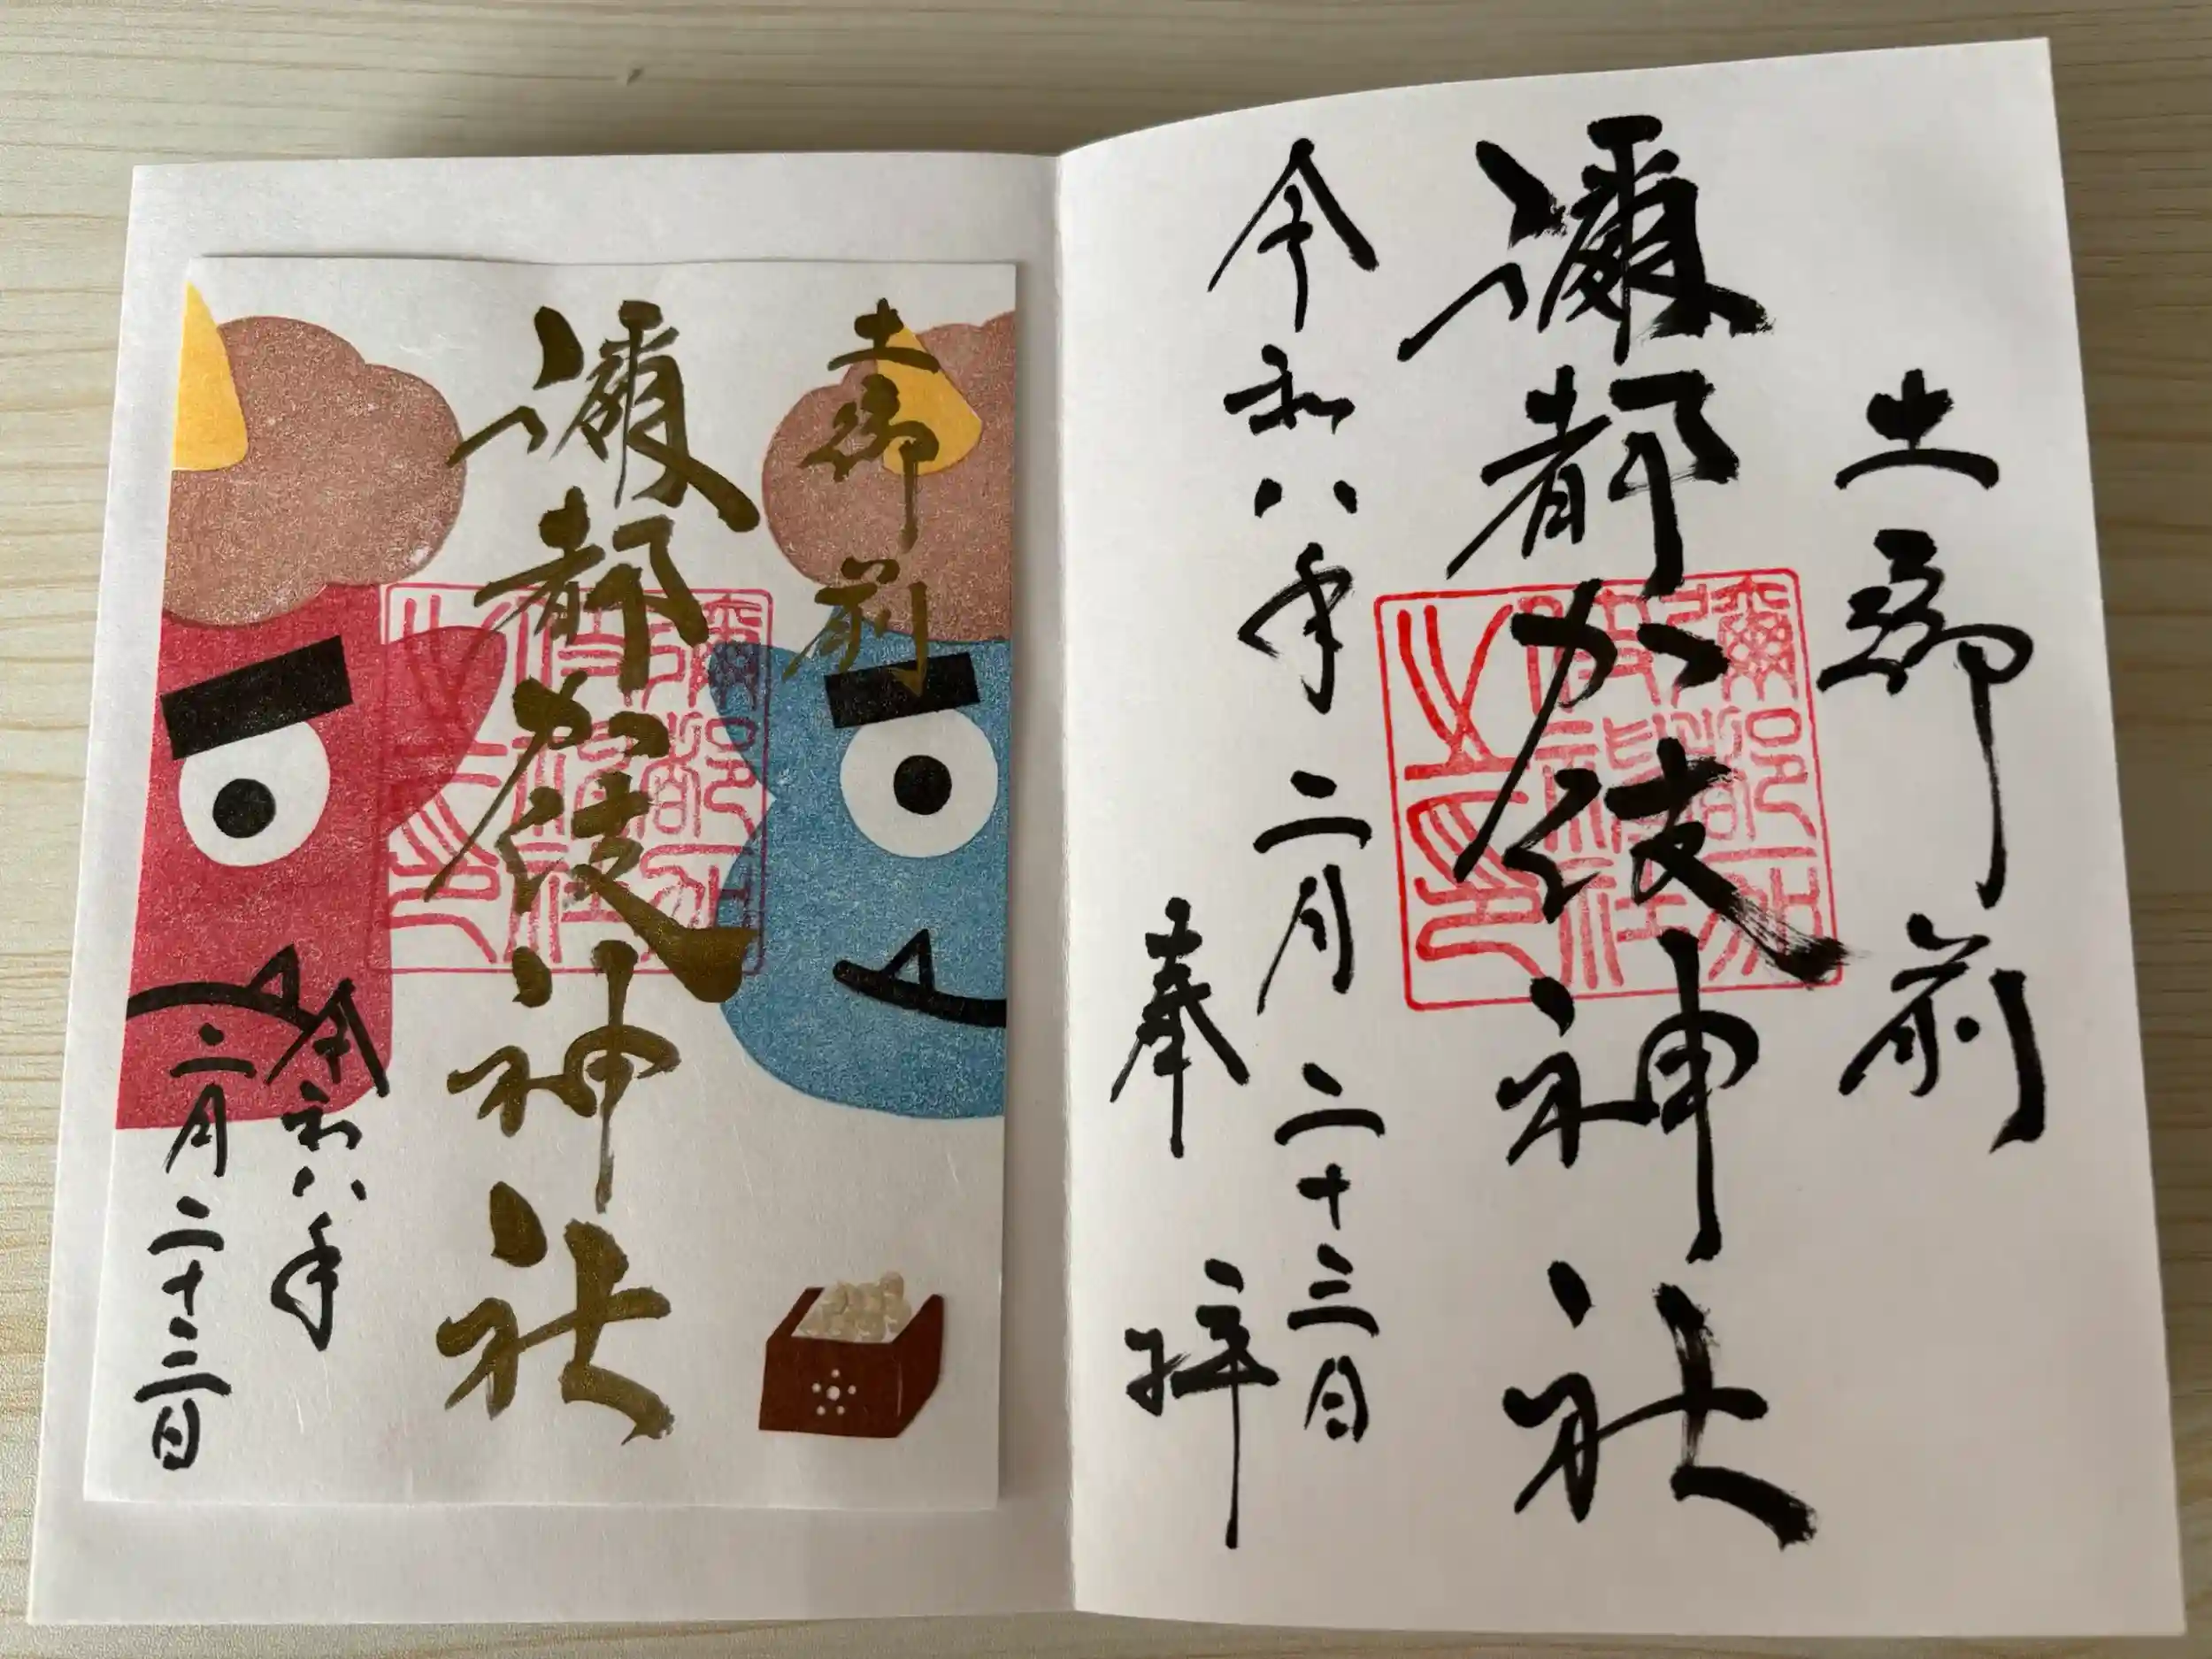 土御前
邇都加伎神社
令和八年二月二十三日
奉拝
土御前
邇都加伎神社
令和八年
二月二十三日